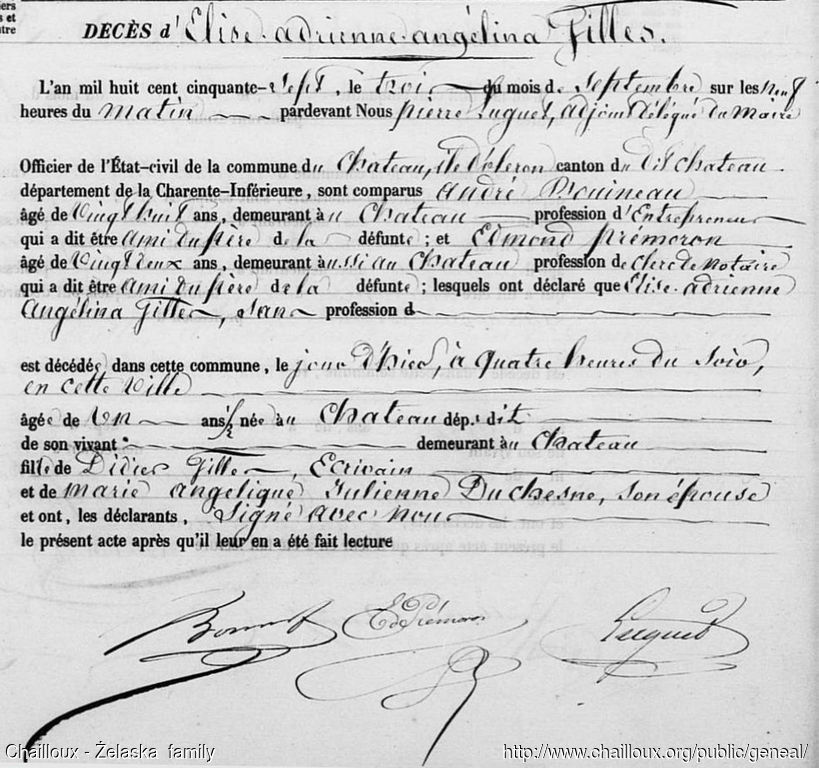 iers
s et
ntre
DÉCÈS d'Elise adrienne angélina Gilles.
L'an mil huit cent cinquante-sept, le trois du mois de Septembre sur les neuf
heures du matin pardevant Nous pierre Luguet, adjoint délégué du Maire
Officier de l'État-civil de la commune du Chateau, ile d'oleron canton du dit chateau
département de la Charente-Inférieure, sont comparus André
âgé de Vingt huit ans, demeurant au Chateau profession d'Entrepreneur
qui a dit être ami du père de la défunte ; et Edmond prémoron
âgé de Vingt deux ans, demeurant aussi au Chateau profession de clerc de Notaire
qui a dit être ami du père de la défunte ; lesquels ont déclaré que Elise adrienne
Angélina Gilles, sans profession d
est décédée dans cette commune, le jour d'hier, à quatre heures du soir,
en cette ville
âgée de un ans 1/2 née au Chateau dép.t dit
de son vivant demeurant au Chateau
fille de Didier Gilles, Ecrivain
et de marie angelique Julienne Duchesne, son épouse
et ont, les déclarants, Signé avec nous
le présent acte après qu'il leur en a été fait lecture
Ed Prémoron Luguet
Chailloux - Żelaska family http://www.chailloux.org/public/geneal/